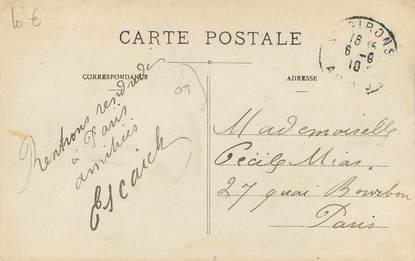 10 €
CARTE POSTALE
CORRESPONDANCE
ADRESSE
GIRONS
18
6 -8
10
09
Rentrons vendredi
à Paris
amitiés
Escaich
Mademoiselle
Cécile Mias
27 quai Bourbon
Paris